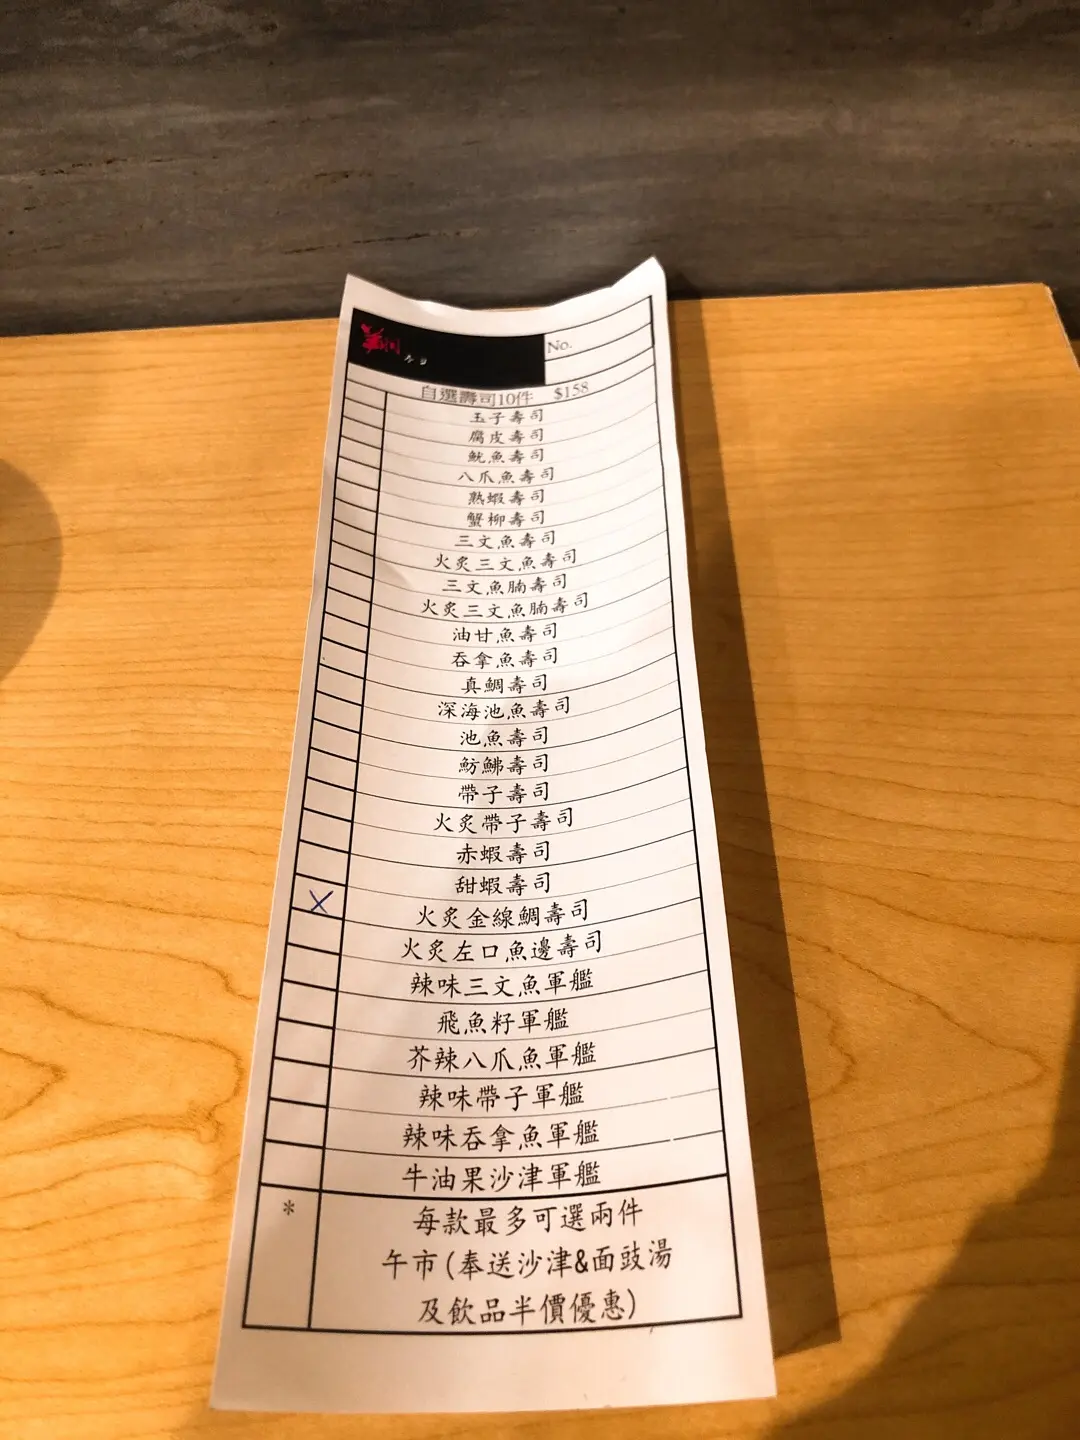 No.
自選壽司10件 $158
玉子壽司
腐皮壽司
魷魚壽司
八爪魚壽司
熟蝦壽司
蟹柳壽司
三文魚壽司
火炙三文魚壽司
三文魚腩壽司
火炙三文魚腩壽司
油甘魚壽司
吞拿魚壽司
真鯛壽司
深海池魚壽司
池魚壽司
魴鮄壽司
帶子壽司
火炙帶子壽司
赤蝦壽司
甜蝦壽司
X
火炙金線鯛壽司
火炙左口魚邊壽司
辣味三文魚軍艦
飛魚籽軍艦
芥辣八爪魚軍艦
辣味帶子軍艦
辣味吞拿魚軍艦
牛油果沙津軍艦
* 每款最多可選兩件
午市(奉送沙津&面豉湯
及飲品半價優惠)